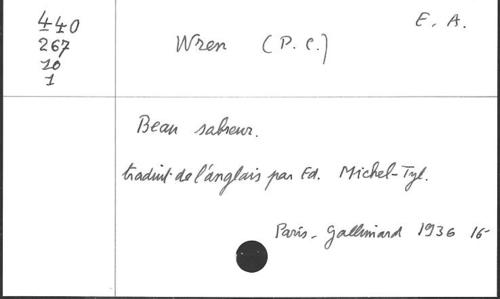 440
267
10
1
E. A.
Wren (P. C.)
Beau sabreur.
traduit de l'anglais par Ed. Michel-Tyl.
Paris - Gallimard 1936 16-